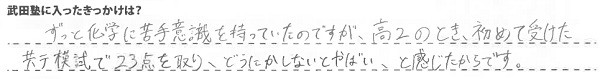 武田塾に入ったきっかけは?
ずっと化学に苦手意識を持っていたのですが、高2のとき、初めて受けた
共テ模試で23点を取り、どうにかしないとやばい、と感じたからです。